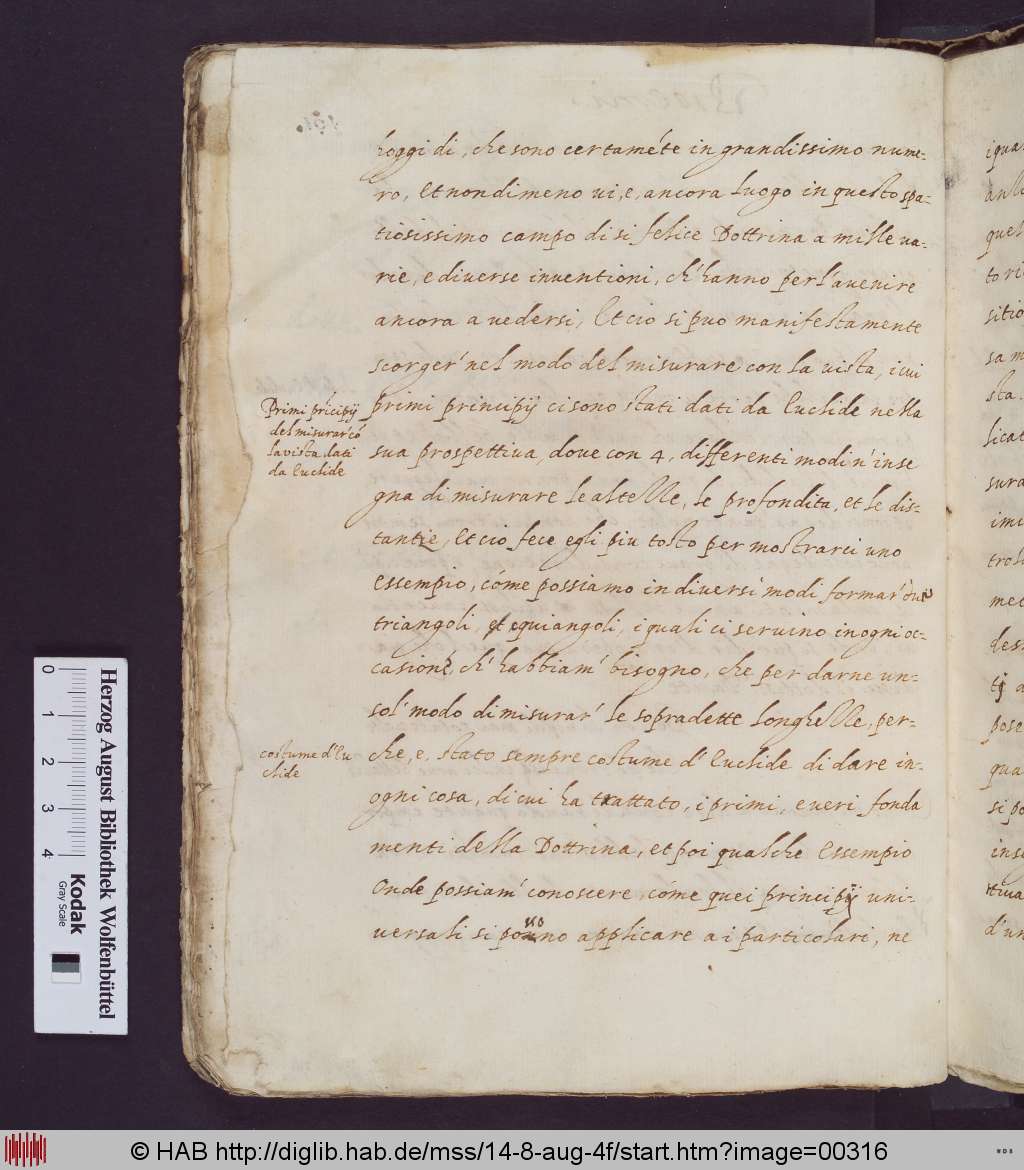 hoggi di, che sono certame'te in grandissimo nume-
ro, Et nondimeno vi, e, ancora luogo in questo spa-
tiosissimo campo di si felice Dottrina a mille va-
rie, e diverse inventioni, ch'hanno per l'avenire
ancora a vedersi, Et cio si puo manifestamente
scorger' nel modo del misurare con la vista, i cui
primi principij ci sono stati dati da Euclide nella
sua prospettiva, dove con 4, differenti modi n'inse
gna di misurare le altelle, le profondita, et le dis-
tantie, Et cio fece egli piu tosto per mostrarci uno
essempio, cóme possiamo in diversi modi formar'
triangoli, et equiangoli, i quali ci servino in ogni oc-
casione, ch'habbiam' bisogno, che per darne un-
sol' modo di misurar' le sopradette longhelle, per-
che, e, stato sempre costume d'Euclide di dare in-
ogni cosa, di cui ha trattato, i primi, e veri fonda
menti della Dottrina, et poi qualche Essempio
Onde possiam' conoscere, cóme quei principij uni-
versali si ponno applicare a i particolari, ne
Primi pricipij
del misurar có
la vista dati
da Euclide
costume d'Eu
clide
Herzog August Bibliothek Wolfenbüttel
Kodak
Gray Scale
0 1 2 3 4
© HAB http://diglib.hab.de/mss/14-8-aug-4f/start.htm?image=00316